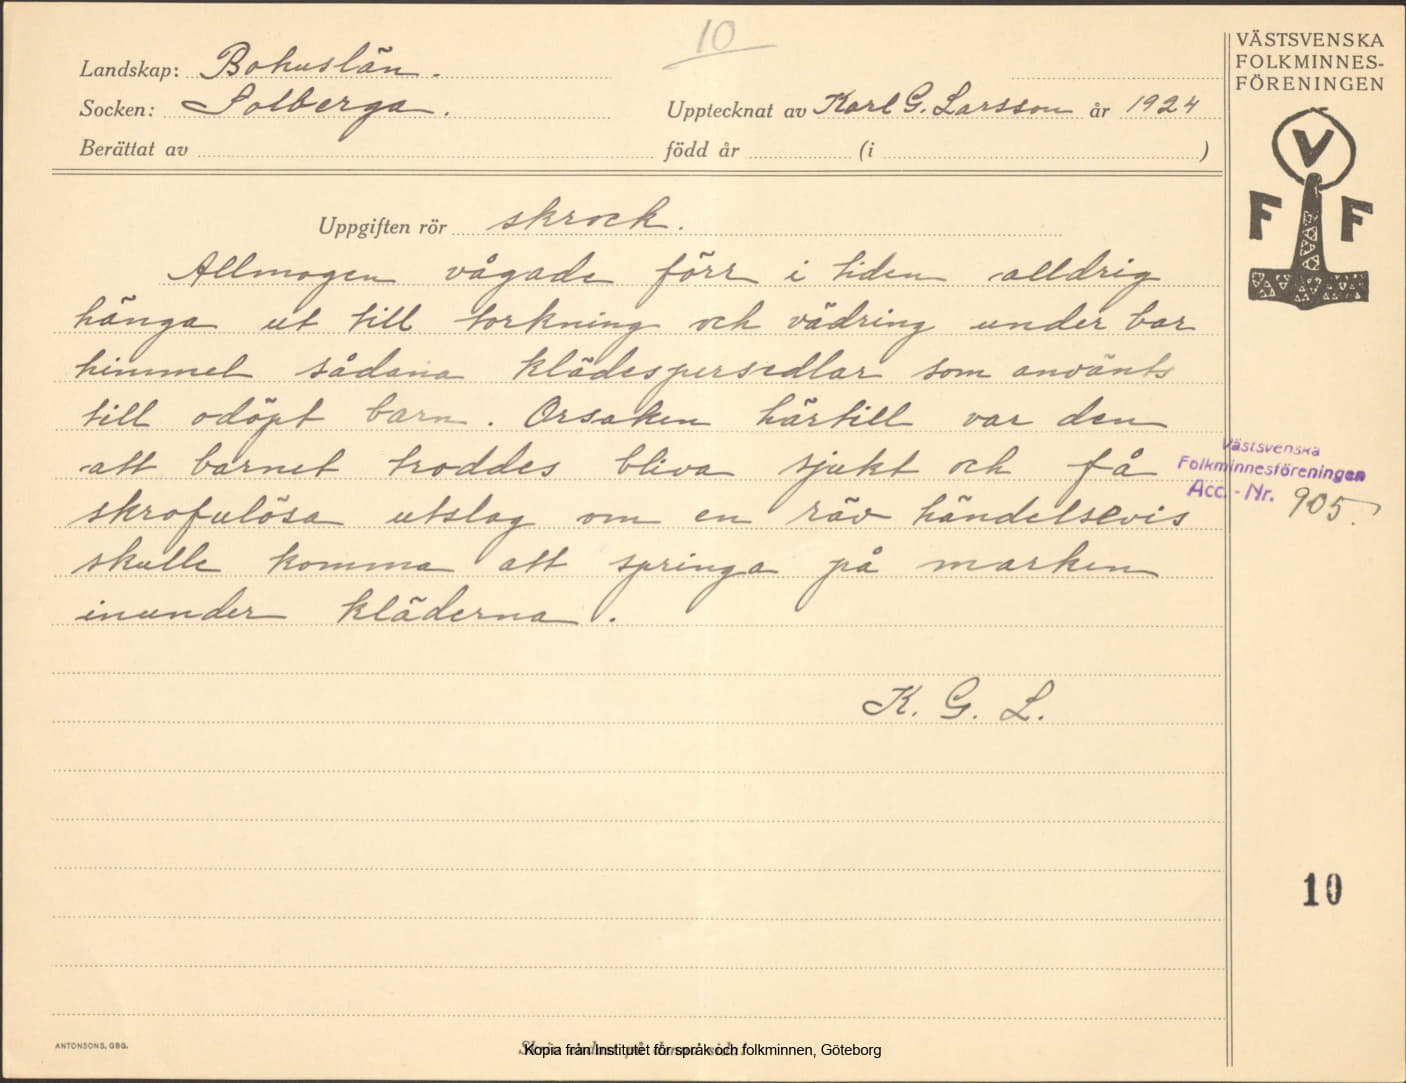 10
Landskap: Bohuslän.
Socken: Solberga.
Upptecknat av Karl G. Larsson år 1924
Berättat av född år (i )
VÄSTSVENSKA
FOLKMINNES-
FÖRENINGEN
V
F F
Uppgiften rör skrock.
Allmogen vågade förr i tiden alldrig
hänga ut till torkning och vädring under bar
himmel sådana klädespersedlar som använts
till odöpt barn. Orsaken härtill var den
att barnet troddes bliva sjukt och få
skrofulösa utslag om en räv händelsevis
skulle komma att springa på marken
inunder kläderna.
K. G. L.
Västsvenska
Folkminnesföreningen
Acc.-Nr. 905.
10
ANTONSONS, GBG.
Kopia från Institutet för språk och folkminnen, Göteborg